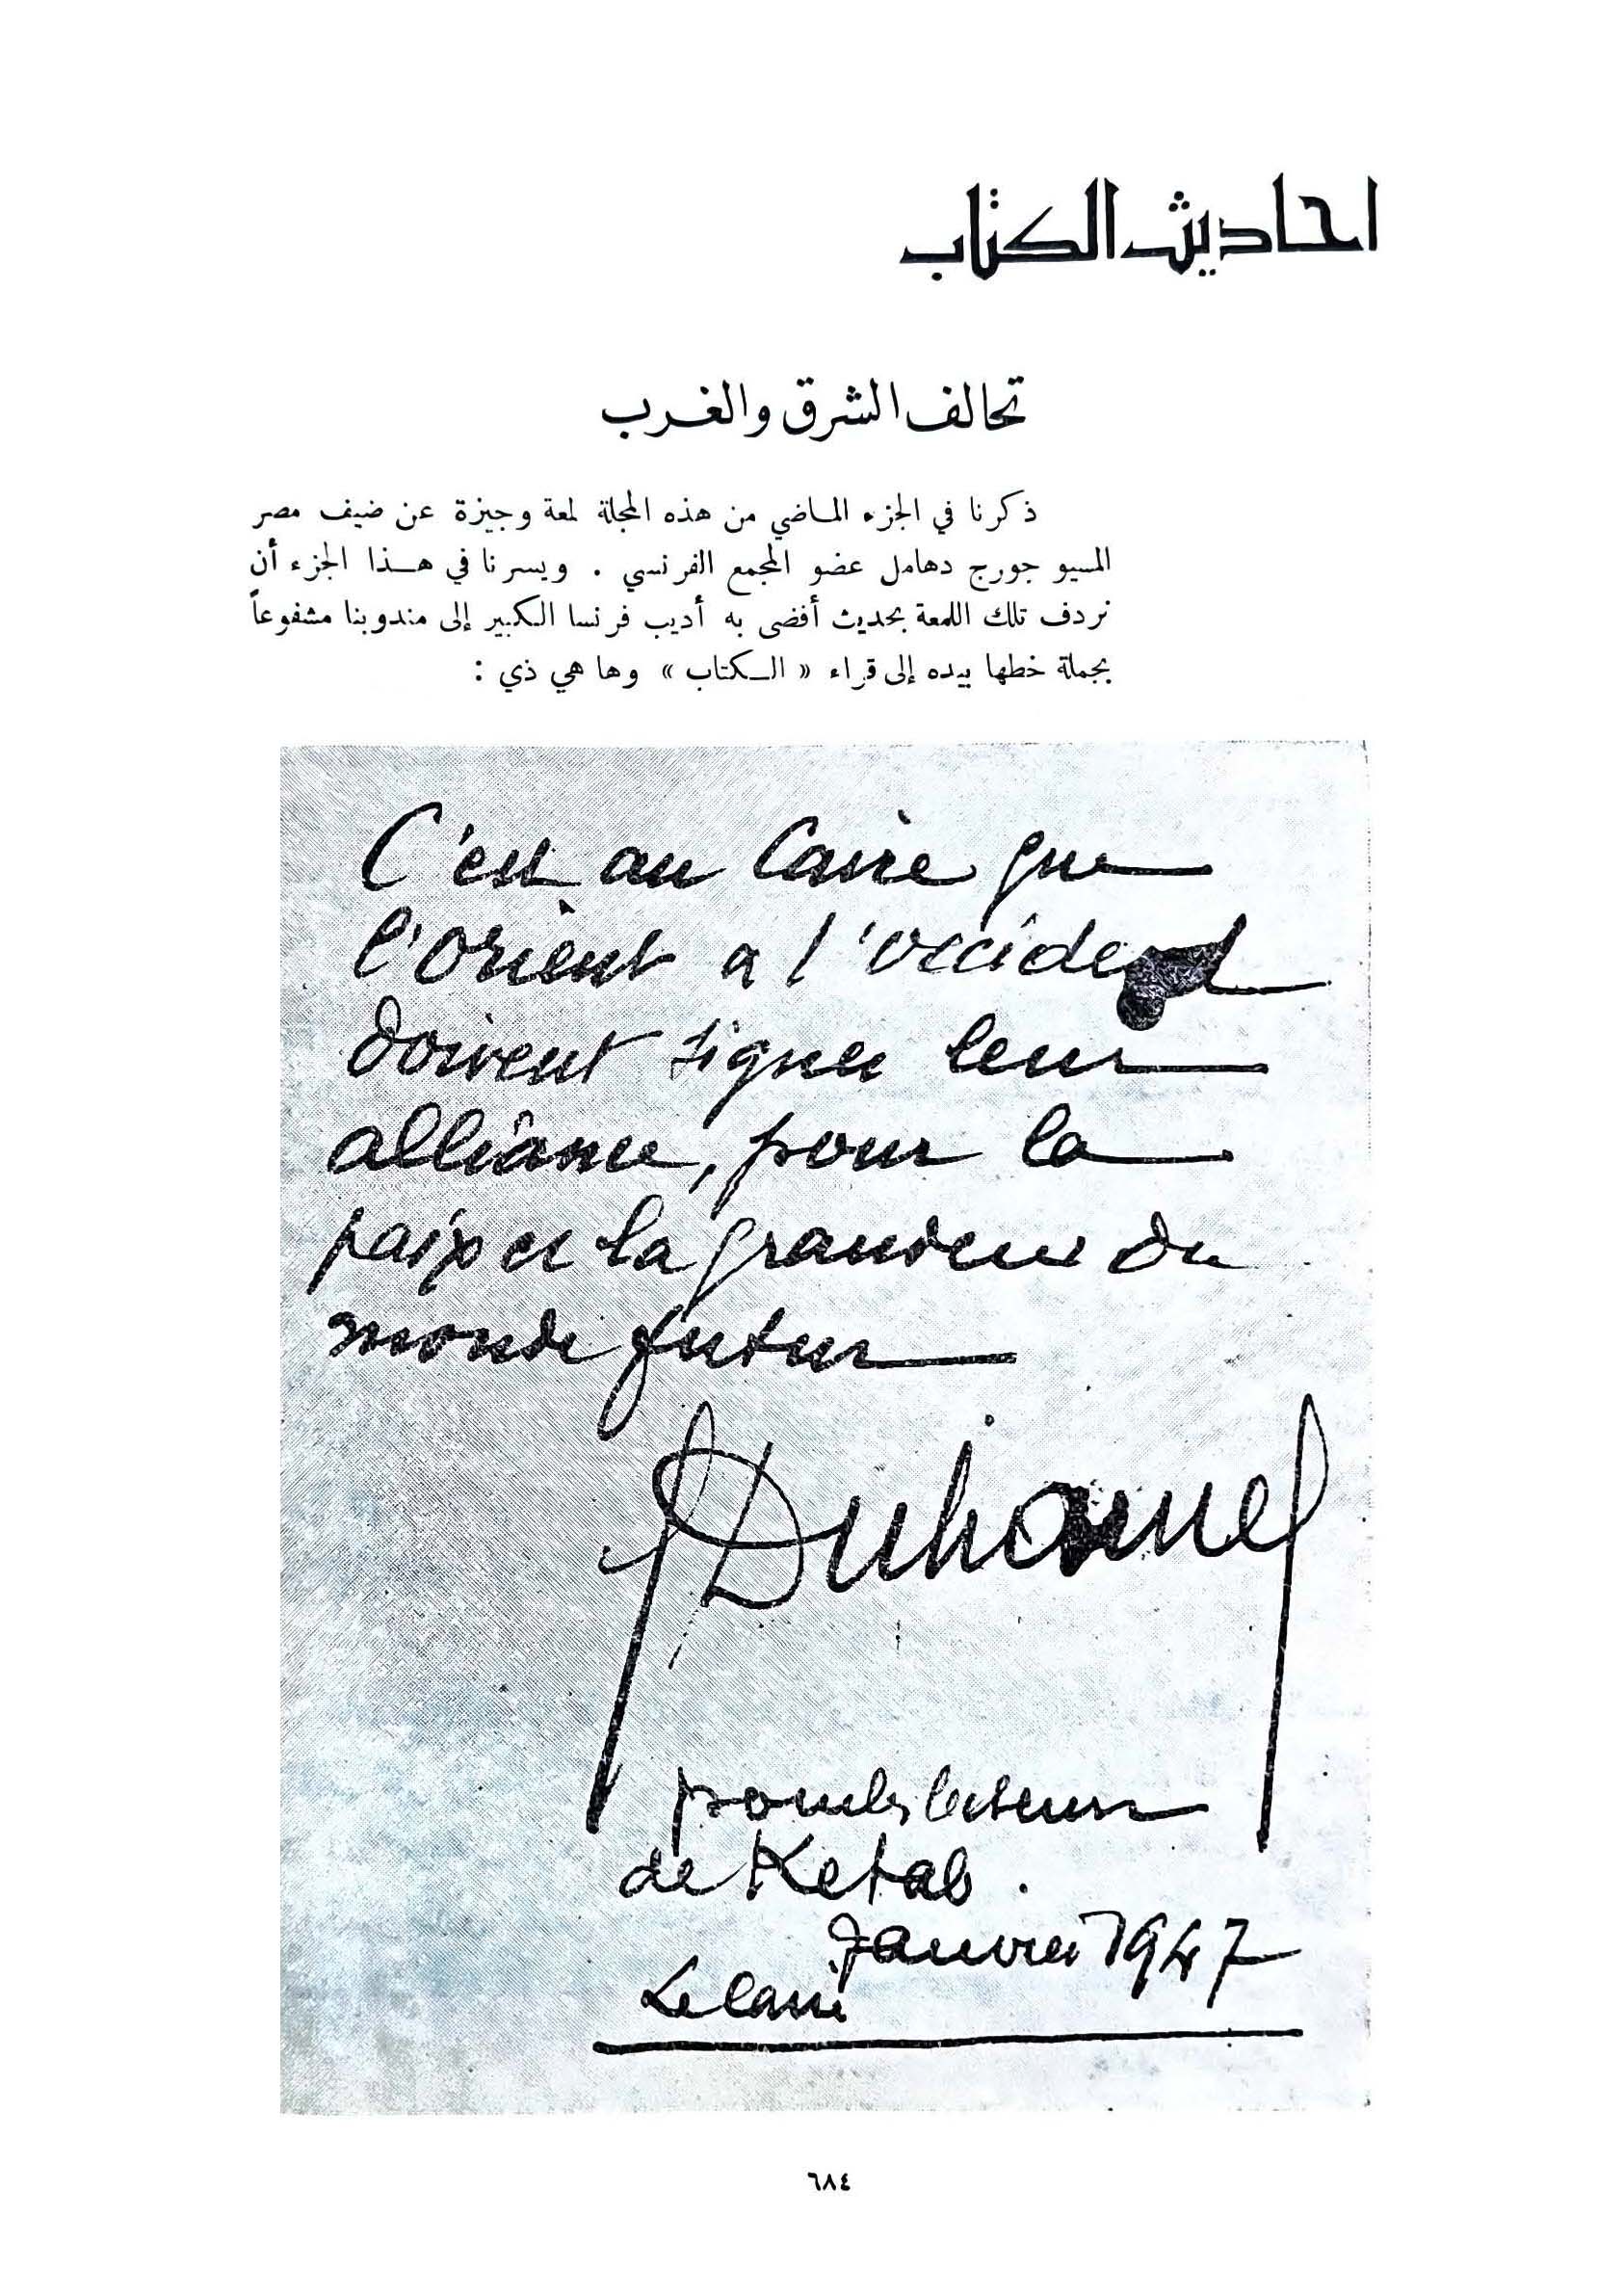 احاديث الكتاب
تحالف الشرق والغرب
ذكرنا في الجزء الماضي من هذه المجلة لمعة وجيزة عن ضيف مصر
المسيو جورج دهامل عضو المجمع الفرنسي . ويسرنا في هذا الجزء أن
نردف تلك اللمعة بحديث أفضى به أديب فرنسا الكبير إلى مندوبنا مشفوعاً
بجملة خطها بيده إلى قراء « الكتاب » وها هي ذي :
C'est au Caire que
l'Orient a l'Occident
doivent signer leur
alliance, pour la
paix et la grandeur du
monde futur
GDuhamel
pour les lecteurs
de Ketab.
Janvier 1947
Le Caire
٦٨٤